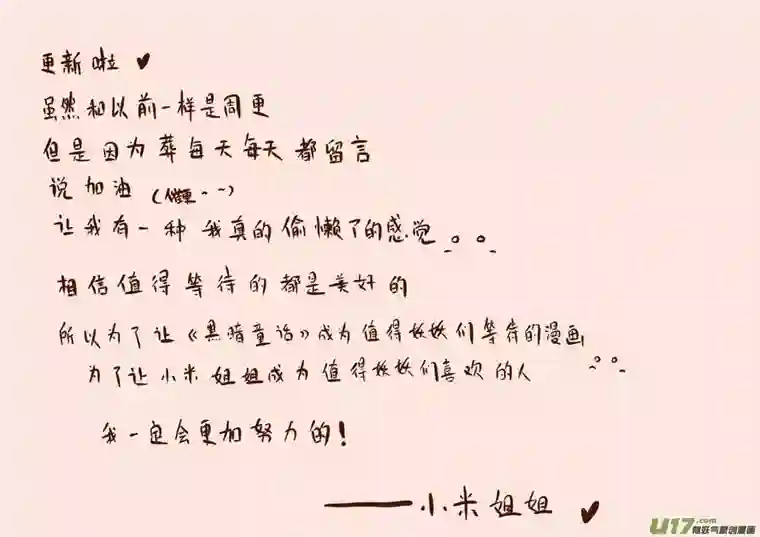 更新啦
虽然和以前一样是周更
但是因为葬每天每天都留言
说加油(催更~~)
让我有一种我真的偷懒了的感觉
相信值得等待的都是美好的
所以为了让《黑暗童话》成为值得妖妖们等待的漫画
为了让小米姐姐成为值得妖妖们喜欢的人
我一定会更加努力的!
——小米姐姐
U17.com
有妖气原创漫画